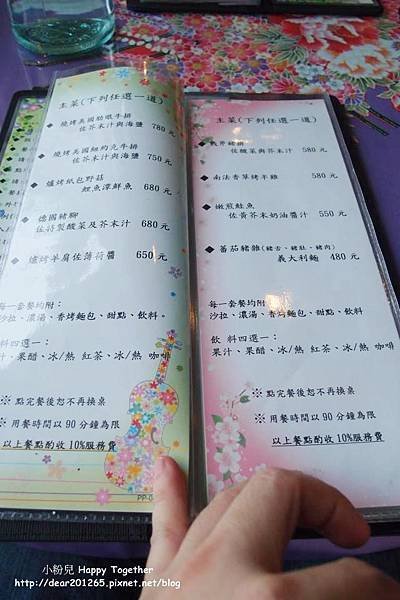 主菜(下列任選一道)
燒烤美國肋眼牛排
佐芥末汁與海鹽 780元
燒烤美國紐約克牛排
佐芥末汁與海鹽 750元
爐烤紙包野菇
鯷魚澤鮮魚 680元
德國豬腳
佐特製酸菜及芥末汁 680元
爐烤羊肩佐薄荷醬 650元
每一套餐均附:
沙拉、濃湯、香烤麵包、甜點、飲料。
料四選一:
汁、果醋、冰/熱 紅茶、冰/熱 咖啡
※ 點完餐後恕不再換桌
※ 用餐時間以90分鐘為限
以上餐點酌收10%服務費
主菜(下列任選一道)
豬排
佐酸菜與芥末汁 580元
南法香草烤半雞 580元
嫩煎鮭魚
佐黃芥末奶油醬汁 550元
蕃茄豬雜(豬舌、豬肚、豬肉)
義大利麵 480元
每一套餐均附:
沙拉、濃湯、香烤麵包、甜點、飲料。
飲 料四選一:
果汁、果醋、冰/熱 紅茶、冰/熱 咖啡
※ 點完餐後恕不再換桌
※ 用餐時間以90分鐘為限
以上餐點酌收10%服務費
小粉兒 Happy Together
http://dear201265.pixnet.net/blog